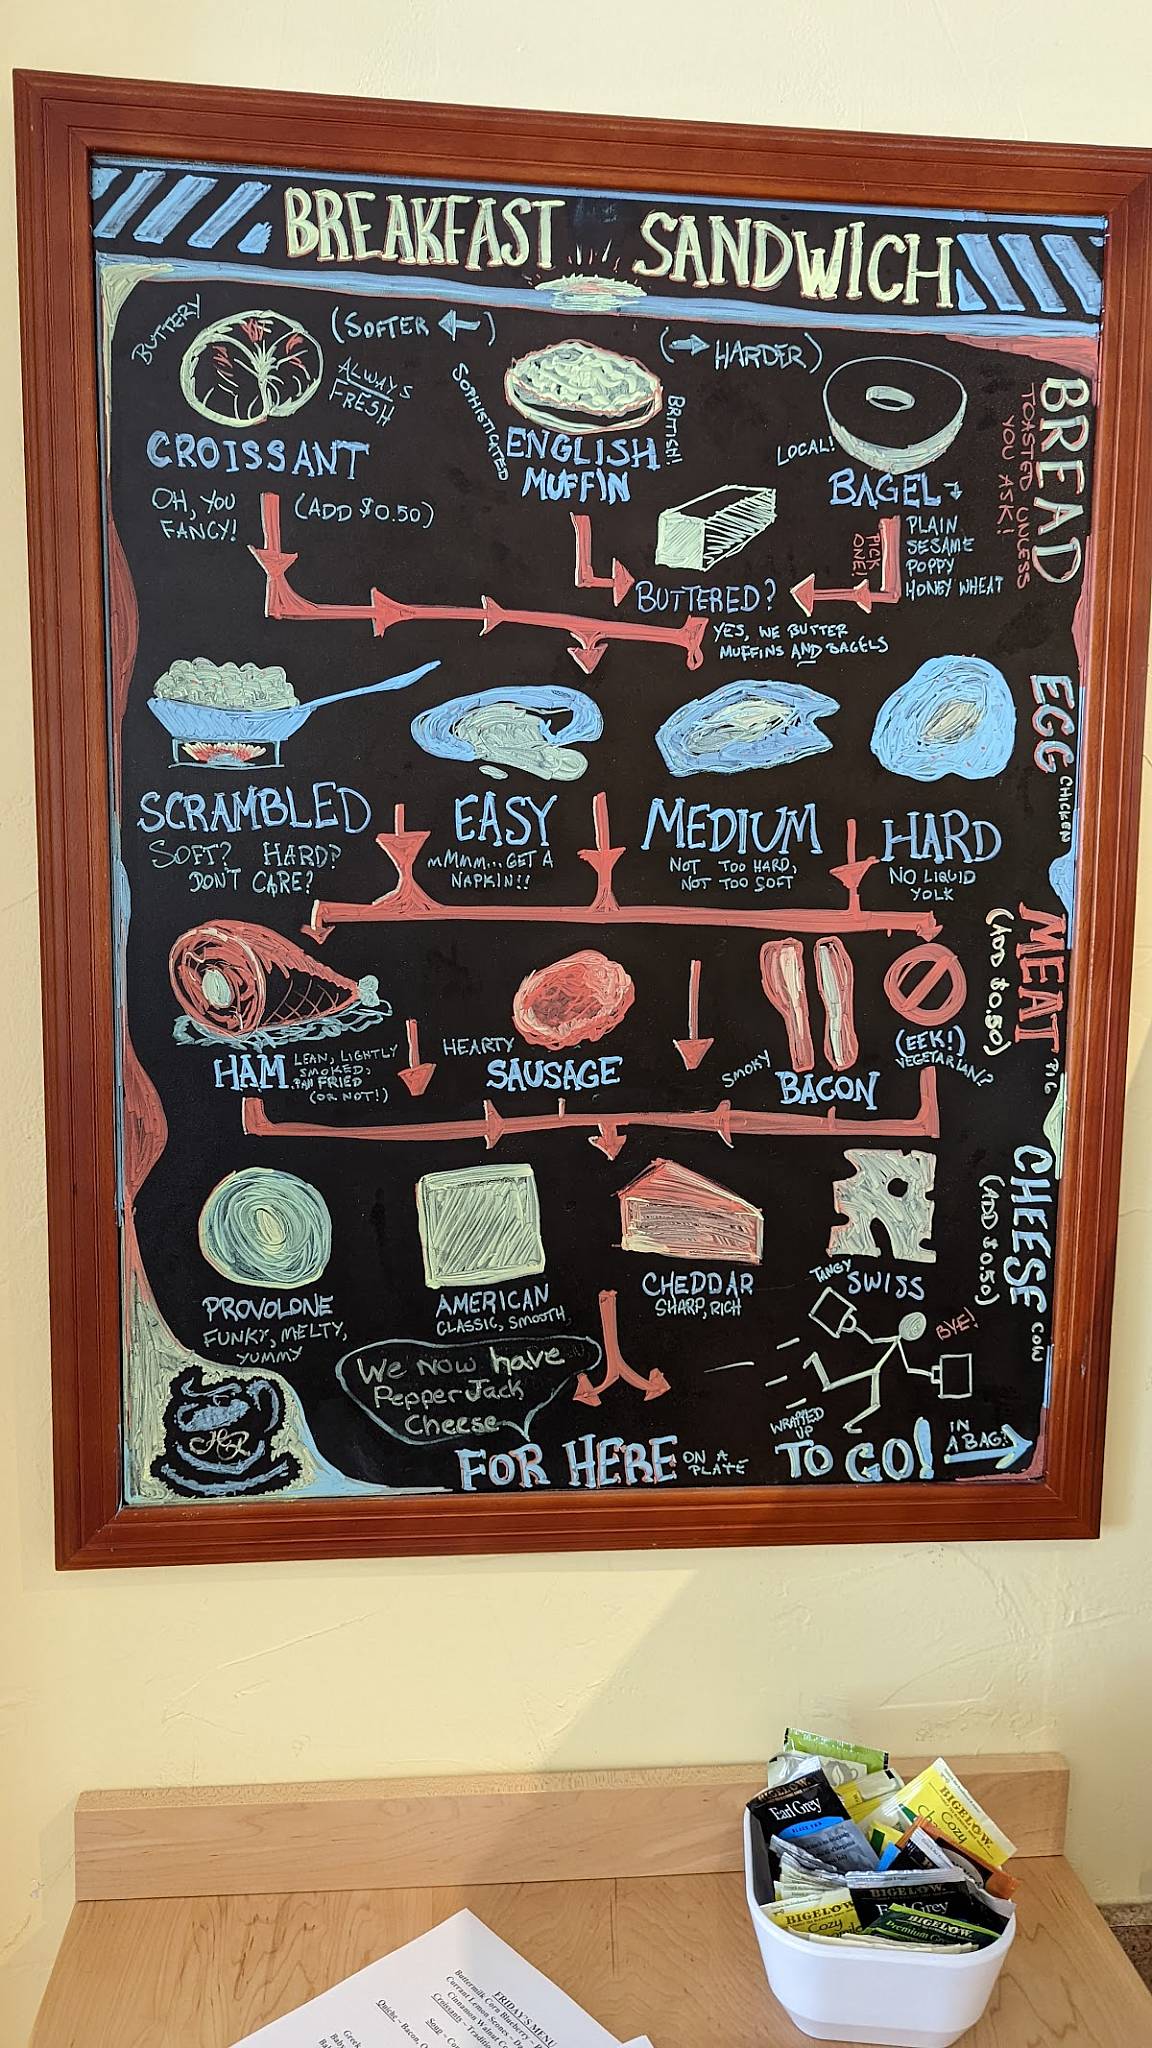 BREAKFAST SANDWICH
BUTTERY
(SOFTER ←)
(→ HARDER)
ALWAYS
FRESH
SOPHISTICATED
BRITISH!!
LOCAL!
CROISSANT
ENGLISH
MUFFIN
BAGEL
BREAD
TOASTED UNLESS
YOU ASK!
OH, YOU
FANCY!
(ADD $0.50)
PICK
ONE!
PLAIN
SESAME
POPPY
HONEY WHEAT
BUTTERED?
YES, WE BUTTER
MUFFINS AND BAGELS
EGG
CHICKEN
SCRAMBLED
SOFT? HARD?
DON'T CARE?
EASY
MMMM...GET A
NAPKIN!!
MEDIUM
NOT TOO HARD,
NOT TOO SOFT
HARD
NO LIQUID
YOLK
MEAT
(ADD $0.50)
PIG
HAM
LEAN, LIGHTLY
SMOKED,
PAN FRIED
(OR NOT!)
HEARTY
SAUSAGE
SMOKY
BACON
(EEK!)
VEGETARIAN?
CHEESE
(ADD $0.50)
COW
PROVOLONE
FUNKY, MELTY,
YUMMY
AMERICAN
CLASSIC, SMOOTH
CHEDDAR
SHARP, RICH
TANGY
SWISS
BYE!
We now have
Pepper Jack
Cheese
FOR HERE
ON A
PLATE
WRAPPED
UP
TO GO!
IN
A BAG!
BIGELOW
Earl Grey
BIGELOW
Cozy
BIGELOW
Earl Grey
BIGELOW
Cozy
BIGELOW
Premium
FRIDAY'S MENU
Buttermilk Corn Blueberry
Currant Lemon Scones
Cinnamon Walnut
Croissants ~
Quiche ~ Bacon,
Soup ~
Greek